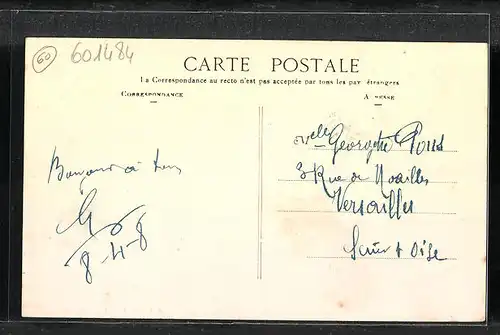 60
601484
CARTE POSTALE
La Correspondance au recto n'est pas acceptée par tous les pays étrangers
CORRESPONDANCE
ADRESSE
Melle Georgette
Bonjour à tous
3 Rue de Noailles
Versailles
8-4-8
Seine & Oise